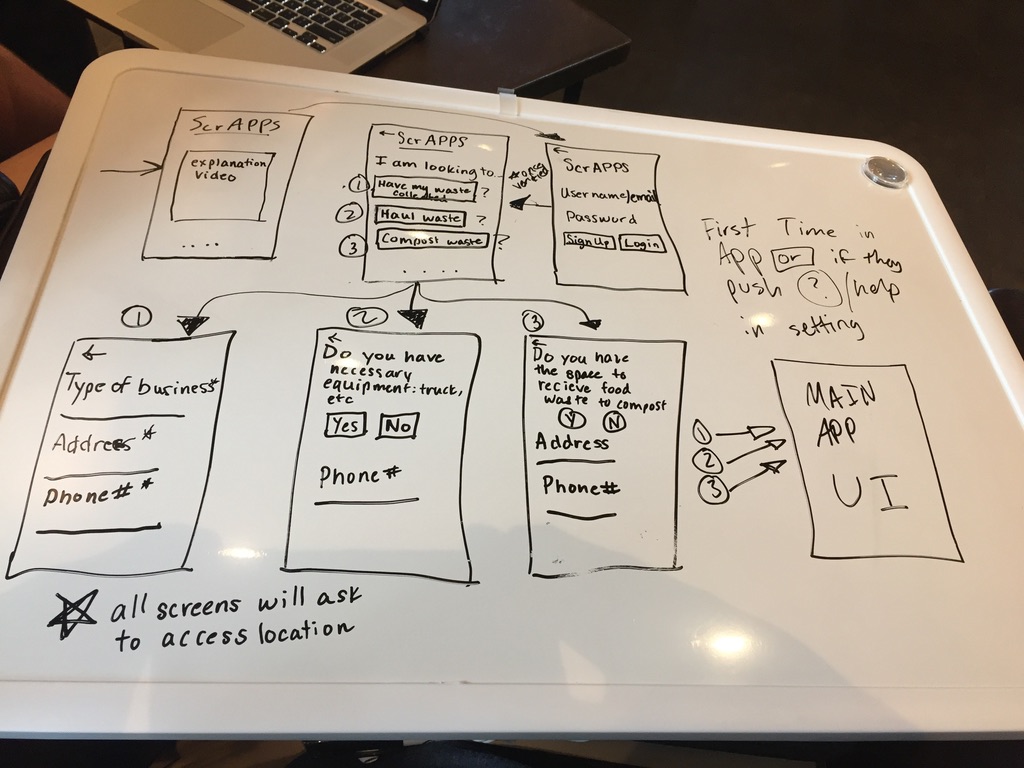 ScrAPPS
explanation
video
← ScrAPPS
I am looking to...
1 Have my waste
collected ?
2 Haul waste ?
3 Compost waste ?
←
ScrAPPS
Username/email
Password
Sign Up Login
verified
First Time in
App or if they
push ?/help
in setting
1
←
Type of business*
Address *
Phone# *
2
←
Do you have
necessary
equipment: truck,
etc
Yes No
Phone#
3
←
Do you have
the space to
recieve food
waste to compost
Y N
Address
Phone#
1
2
3
MAIN
APP
UI
☆ all screens will ask
to access location